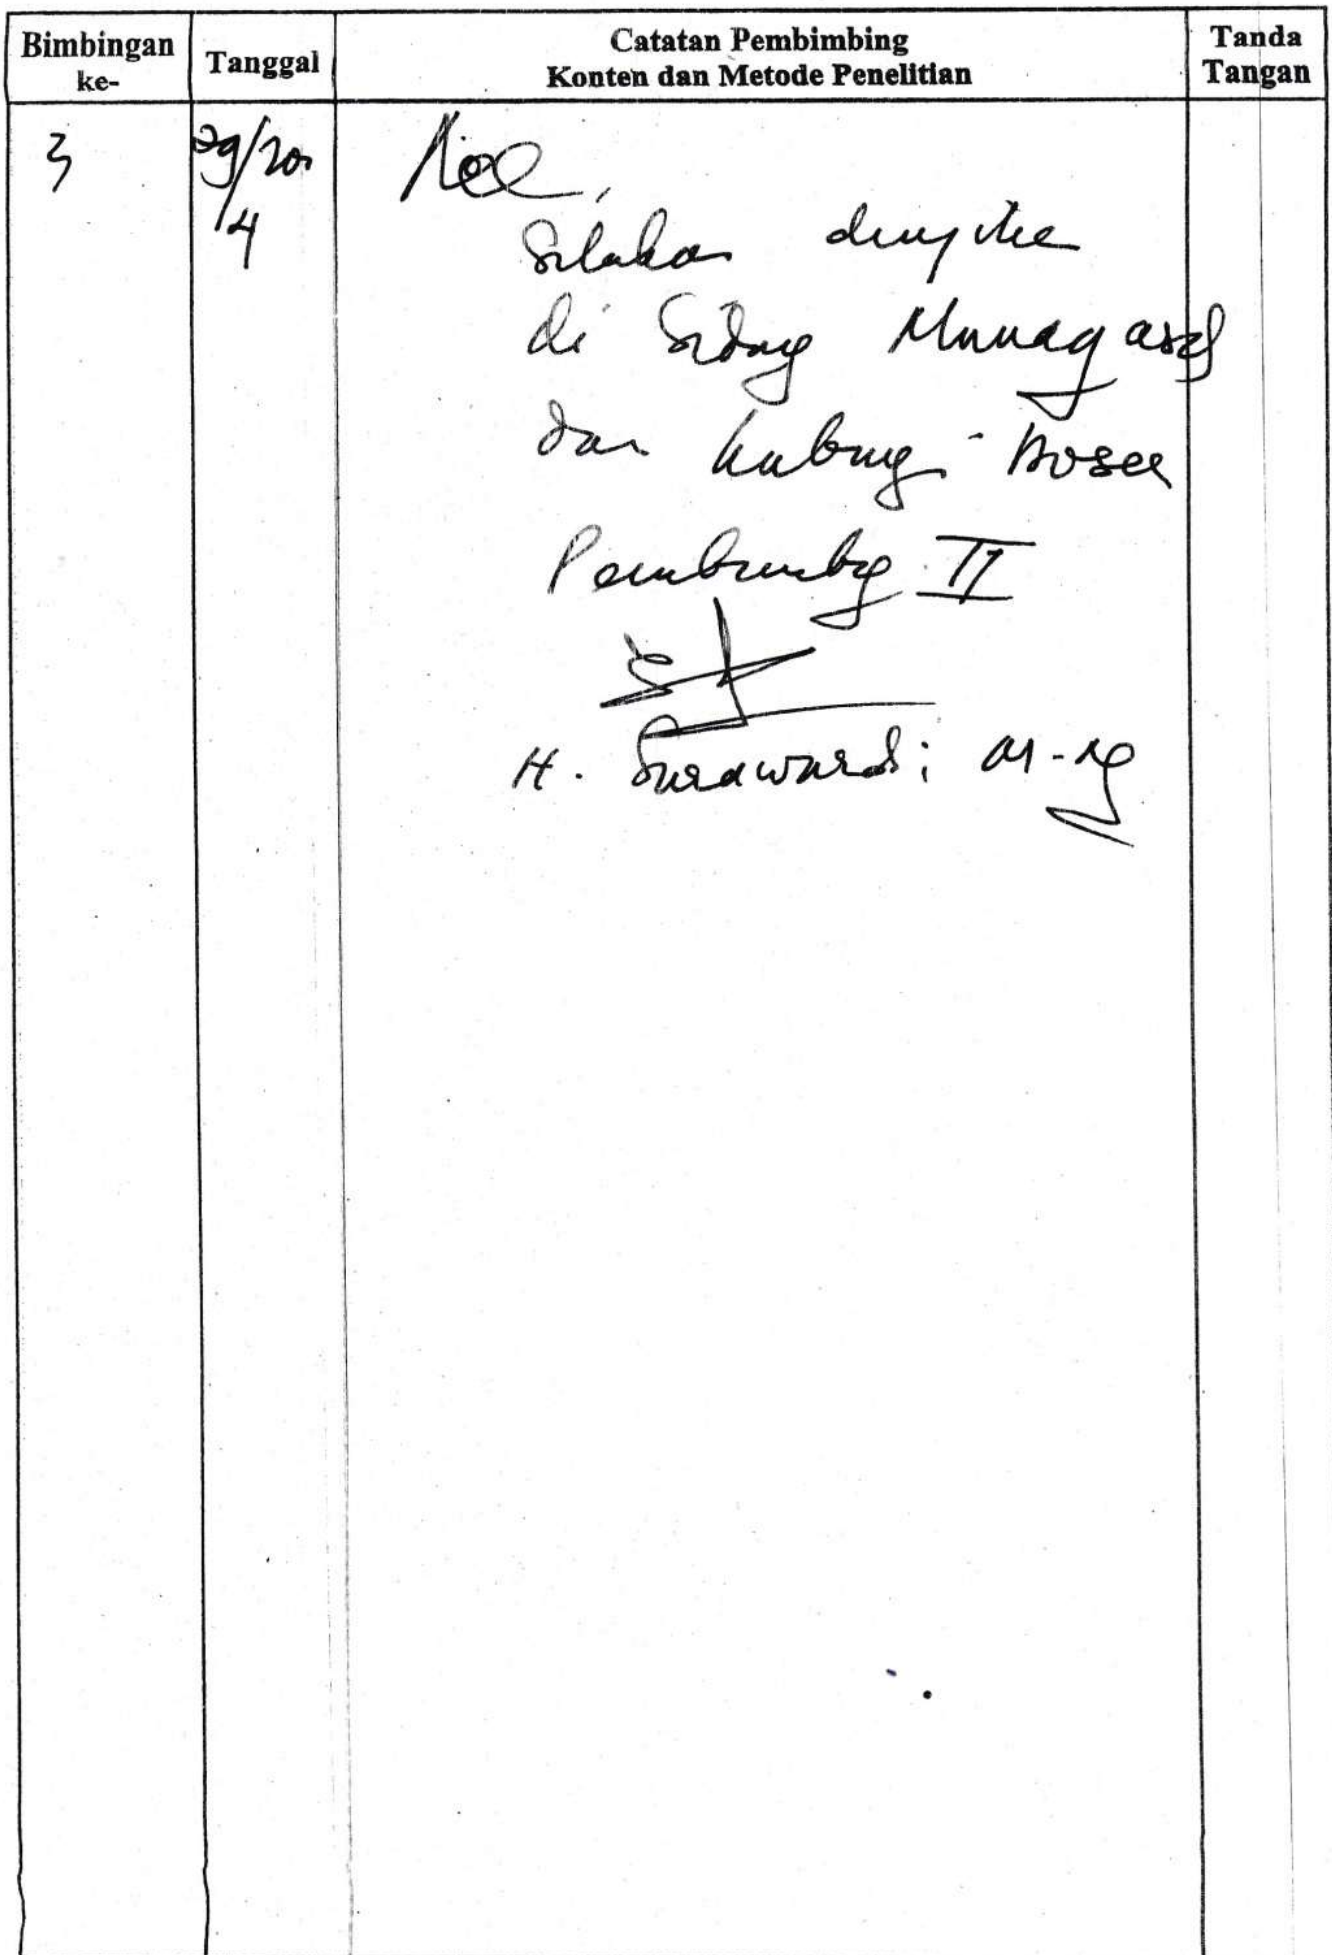 Bimbingan ke-
Tanggal
Catatan Pembimbing
Konten dan Metode Penelitian
Tanda Tangan
3
29/20
4
Acc,
Silakan
di Sidang Munaqasah
dan hubungi Dosen
Pembimbing II
H.